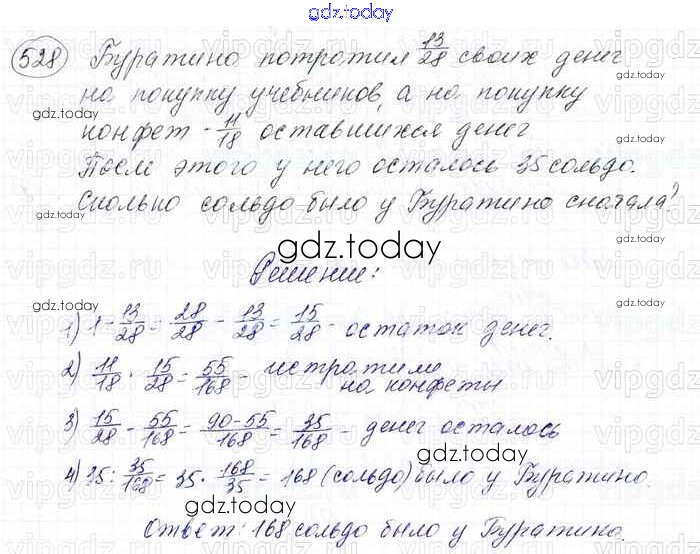 gdz.today
528 Буратино потратил 13/28 своих денег
на покупку учебников, а на покупку
конфет - 11/18 оставшихся денег
После этого у него осталось 35 сольдо.
Сколько сольдо было у Буратино сначала?
gdz.today
Решение:
1) 1 - 13/28 = 28/28 - 13/28 = 15/28 - остаток денег.
2) 11/18 · 15/28 = 55/168 - истратили
на конфеты
3) 15/28 - 55/168 = 90-55/168 = 35/168 - денег осталось
4) 35 : 35/168 = 35 · 168/35 = 168 (сольдо) было у Буратино.
gdz.today
Ответ: 168 сольдо было у Буратино.